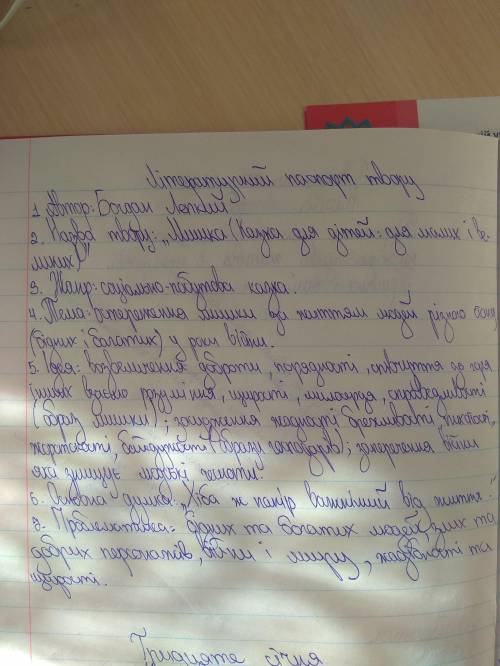 Літературний паспорт твору
1. Автор: Богдан Лепкий
2. Назва твору: „Мишка (Казка для дітей: для малих і ве-
ликих)"
3. Жанр: соціально-побутова казка.
4. Тема: спостереження мишки за життям людей різного
(бідних і багатих) у роки війни.
5. Ідея: возвеличення доброти, порядності, співчуття до горя
інших, розуміння, щирості, милосердя, справедливості
(образ мишки); засудження жадності, брехливості,
жорстокості, байдужості (образи господарів); заперечення війни
яка знищує людські
6. Основна думка: „Хіба ж папір важніший від життя."
7. Проблематика: бідних та багатих людей, злих та
добрих персонажів, війни і миру, жадібності та
щирості.
Тринадцяте січня